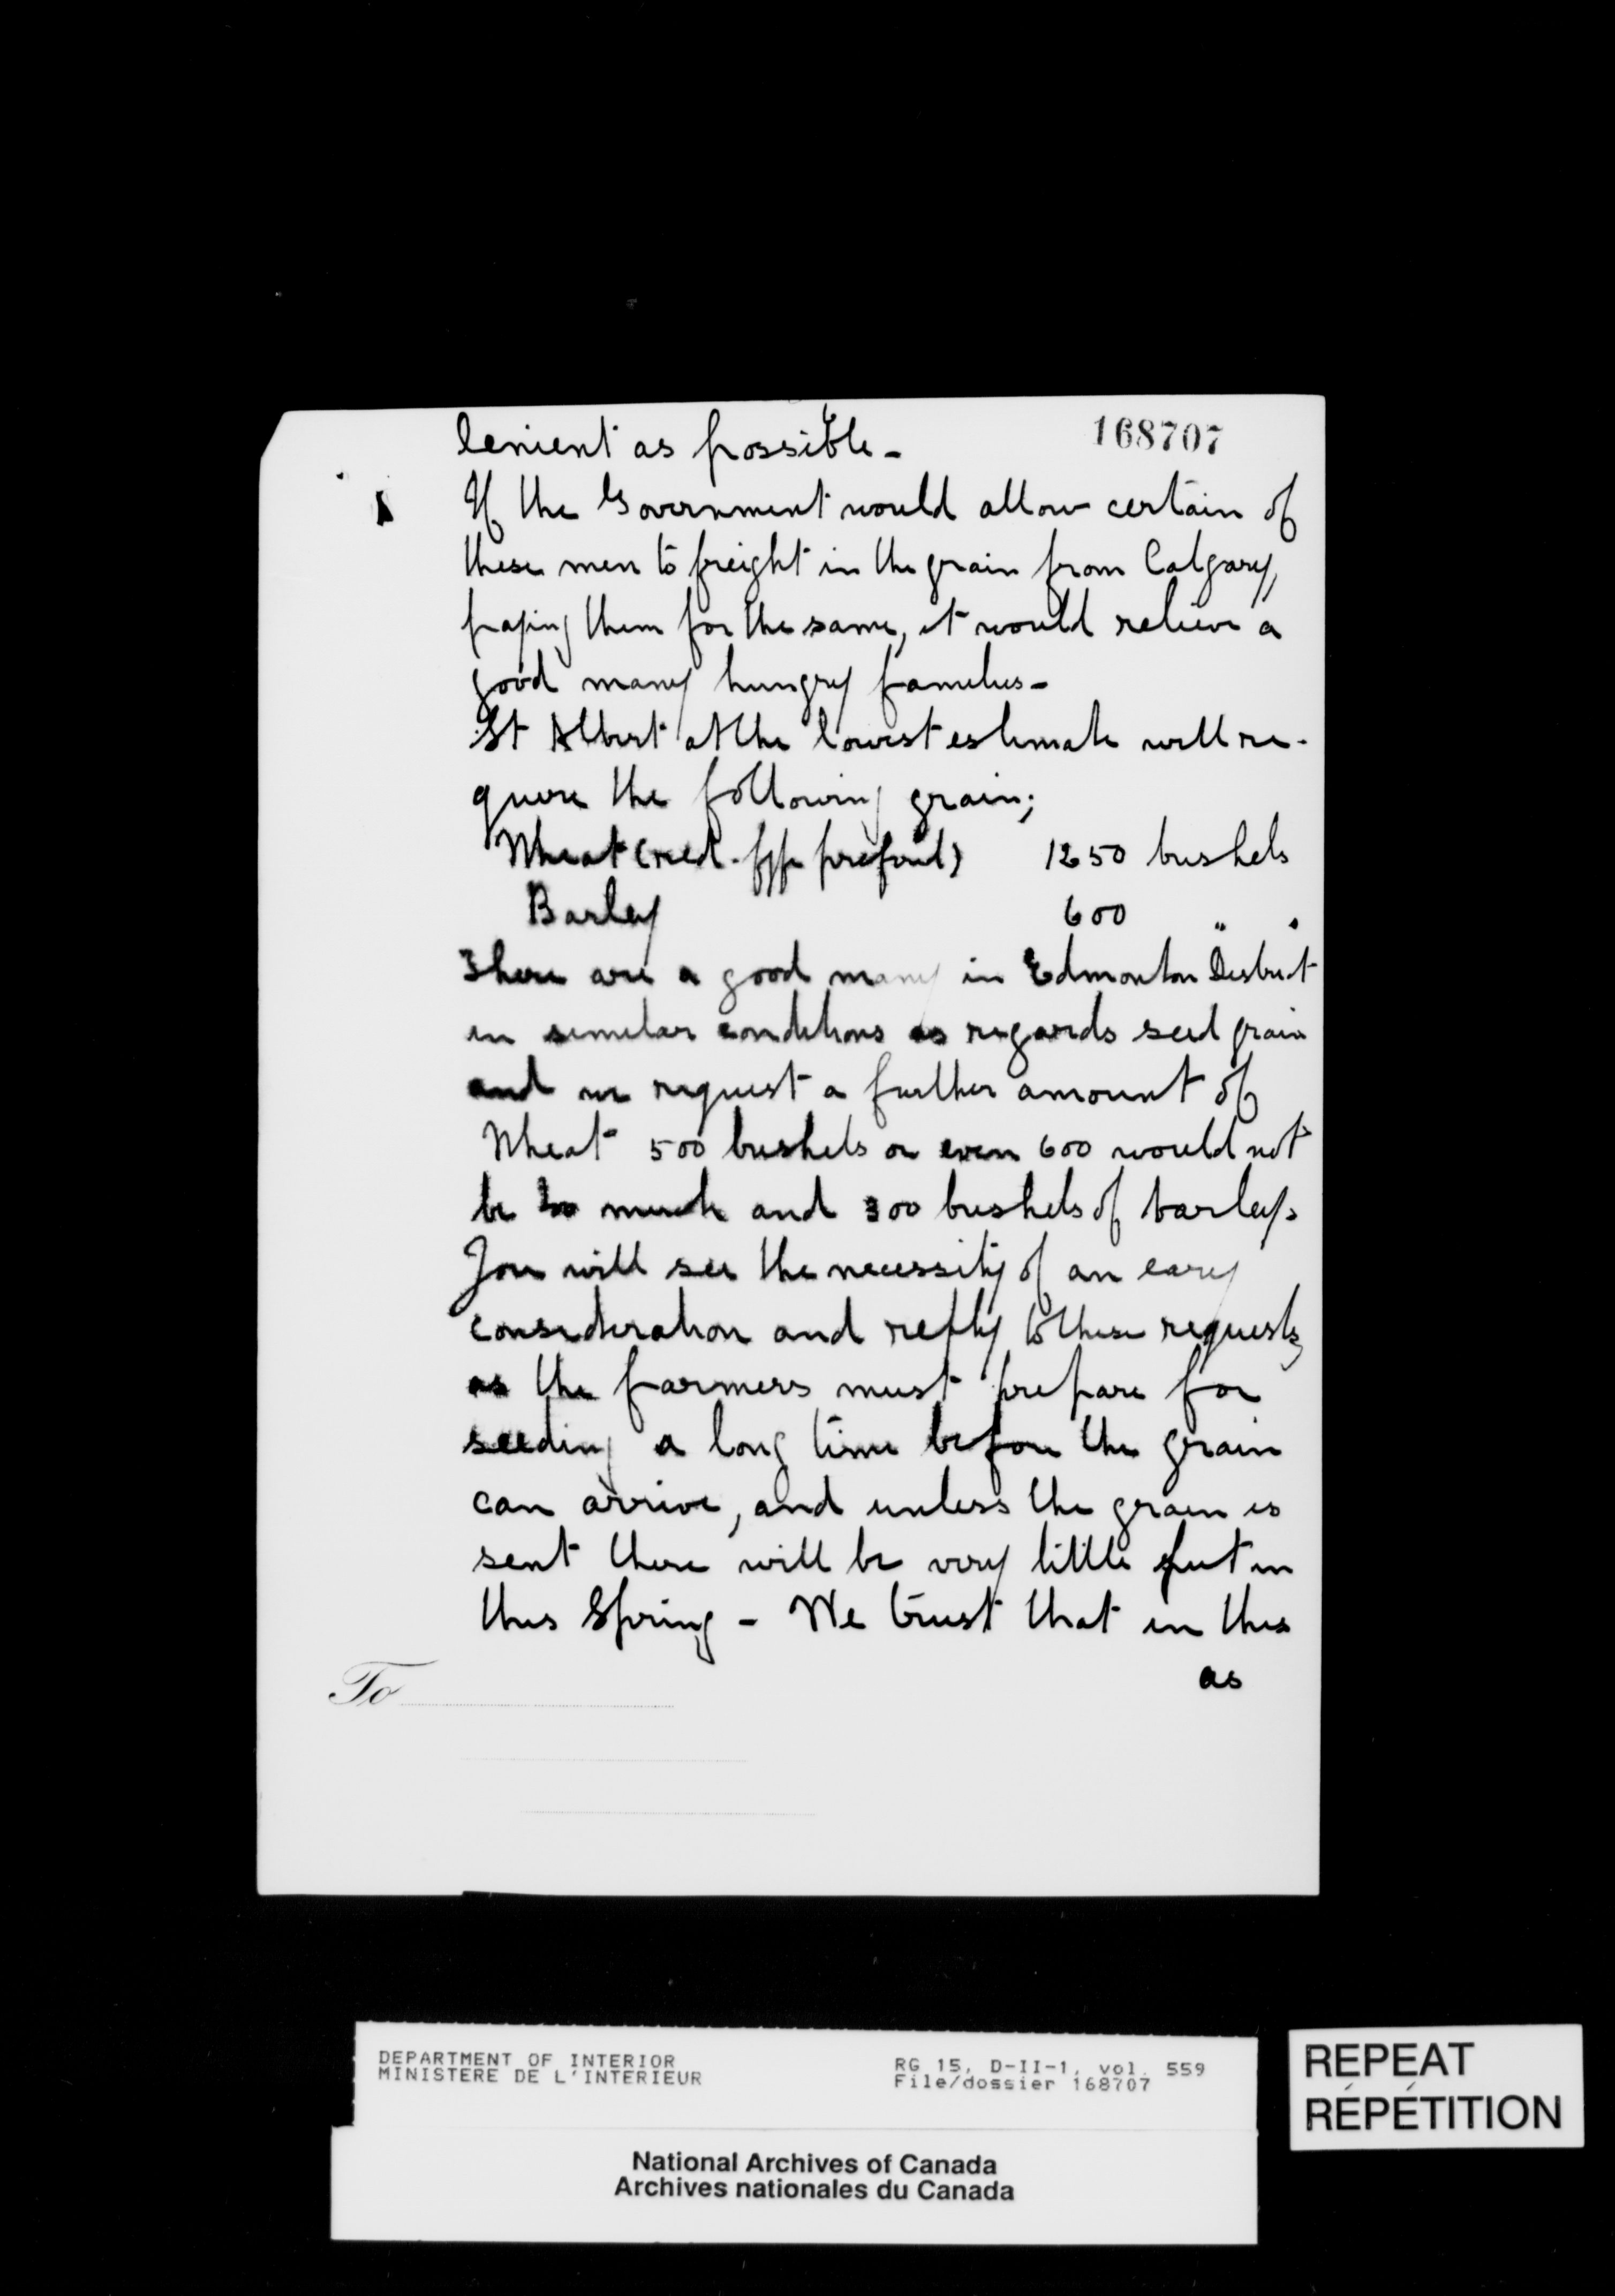 lenient as possible -
168707
If the Government would allow certain of
these men to freight in the grain from Calgary,
paying them for the same, it would relieve a
good many hungry families -
St Albert at the lowest estimate will re-
quire the following grain;
Wheat (red. fyfe prefered) 1250 bushels
Barley 600 " "
There are a good many in Edmonton District
in similar conditions as regards seed grain
and we request a further amount of
Wheat 500 bushels or even 600 would not
be too much and 300 bushels of barley.
You will see the necessity of an eary
consideration and reply to these requests
as the farmers must prepare for
seeding a long time before the grain
can arrive, and unless the grain is
sent there will be very little put in
this Spring - We trust that in this
as
To
DEPARTMENT OF INTERIOR
MINISTERE DE L'INTERIEUR
RG 15, D-II-1, vol. 559
File/dossier 168707
National Archives of Canada
Archives nationales du Canada
REPEAT
RÉPÉTITION